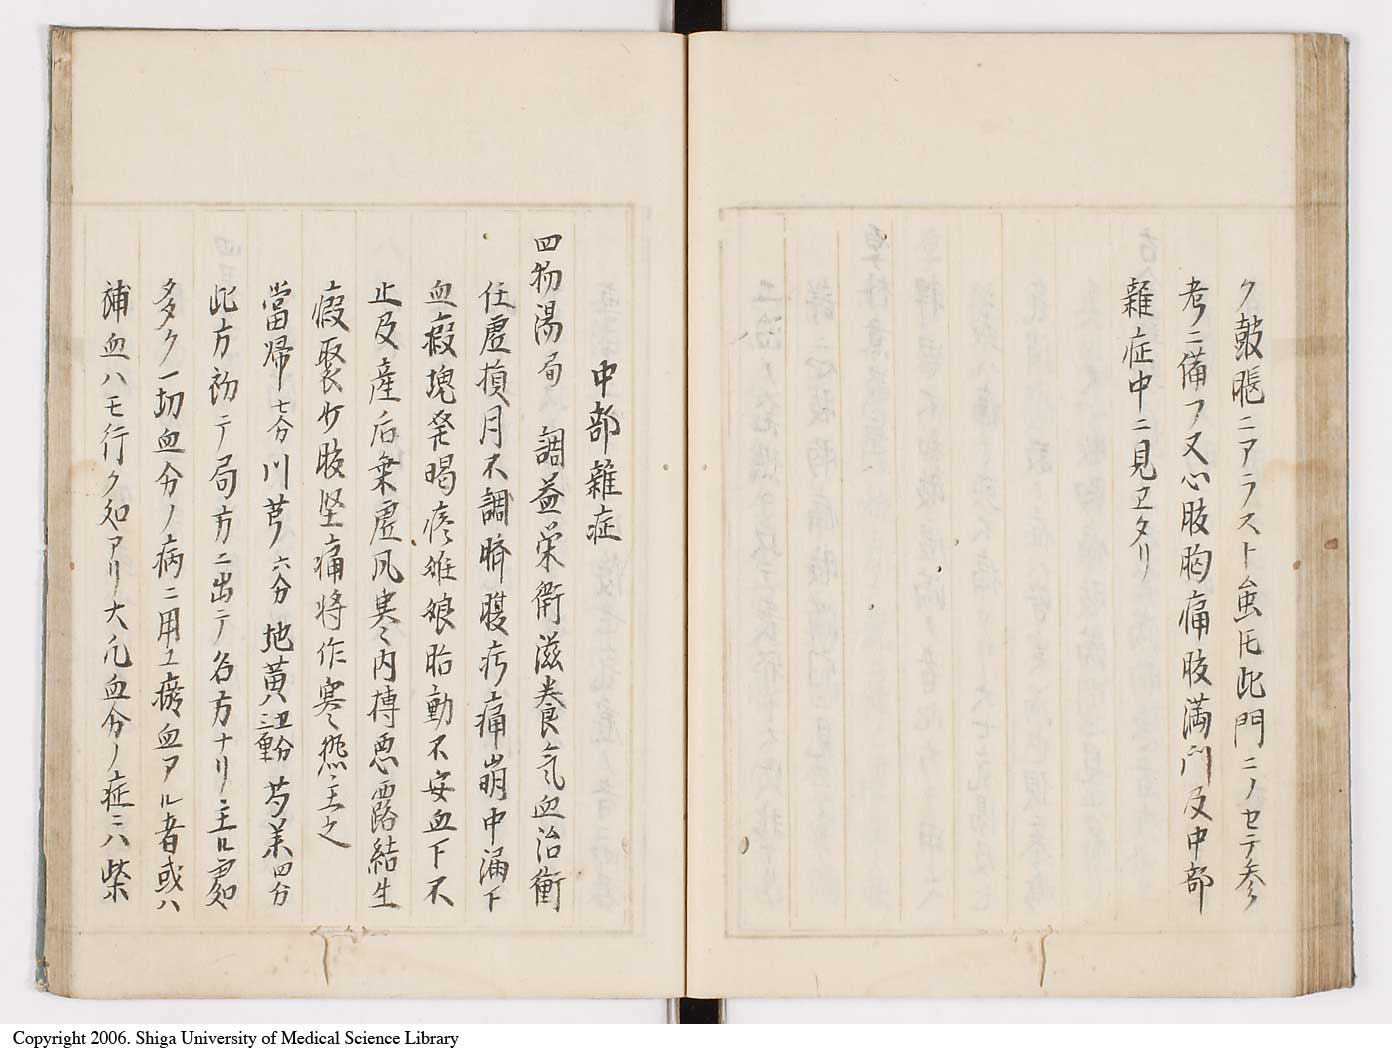 ク鼓脹ニアラスト䖝㐧此門ニノセテ参
考ニ備フ又心腹胸痛腹満門及中部
雜症中ニ見エタリ
中部雜症
四物湯 局 調益栄衛滋養気血治衝
任虚損月不調臍腹㽲痛崩中漏下
血瘕塊発歇疼雉娘胎動不安血下不
止及産后乗虚风寒〻内搏悪露結生
瘕聚少腹堅痛将作寒〻熱主之
當帰 七分 川芎 六分 地黄 芍薬 四分
此方初テ局方ニ出テ名方ナリ主ル処
多ク一切血分ノ病ニ用ユ瘀血アル者或ハ
補血ハモ行ク処アリ大凡血分ノ症ニハ柴
Copyright 2006. Shiga University of Medical Science Library